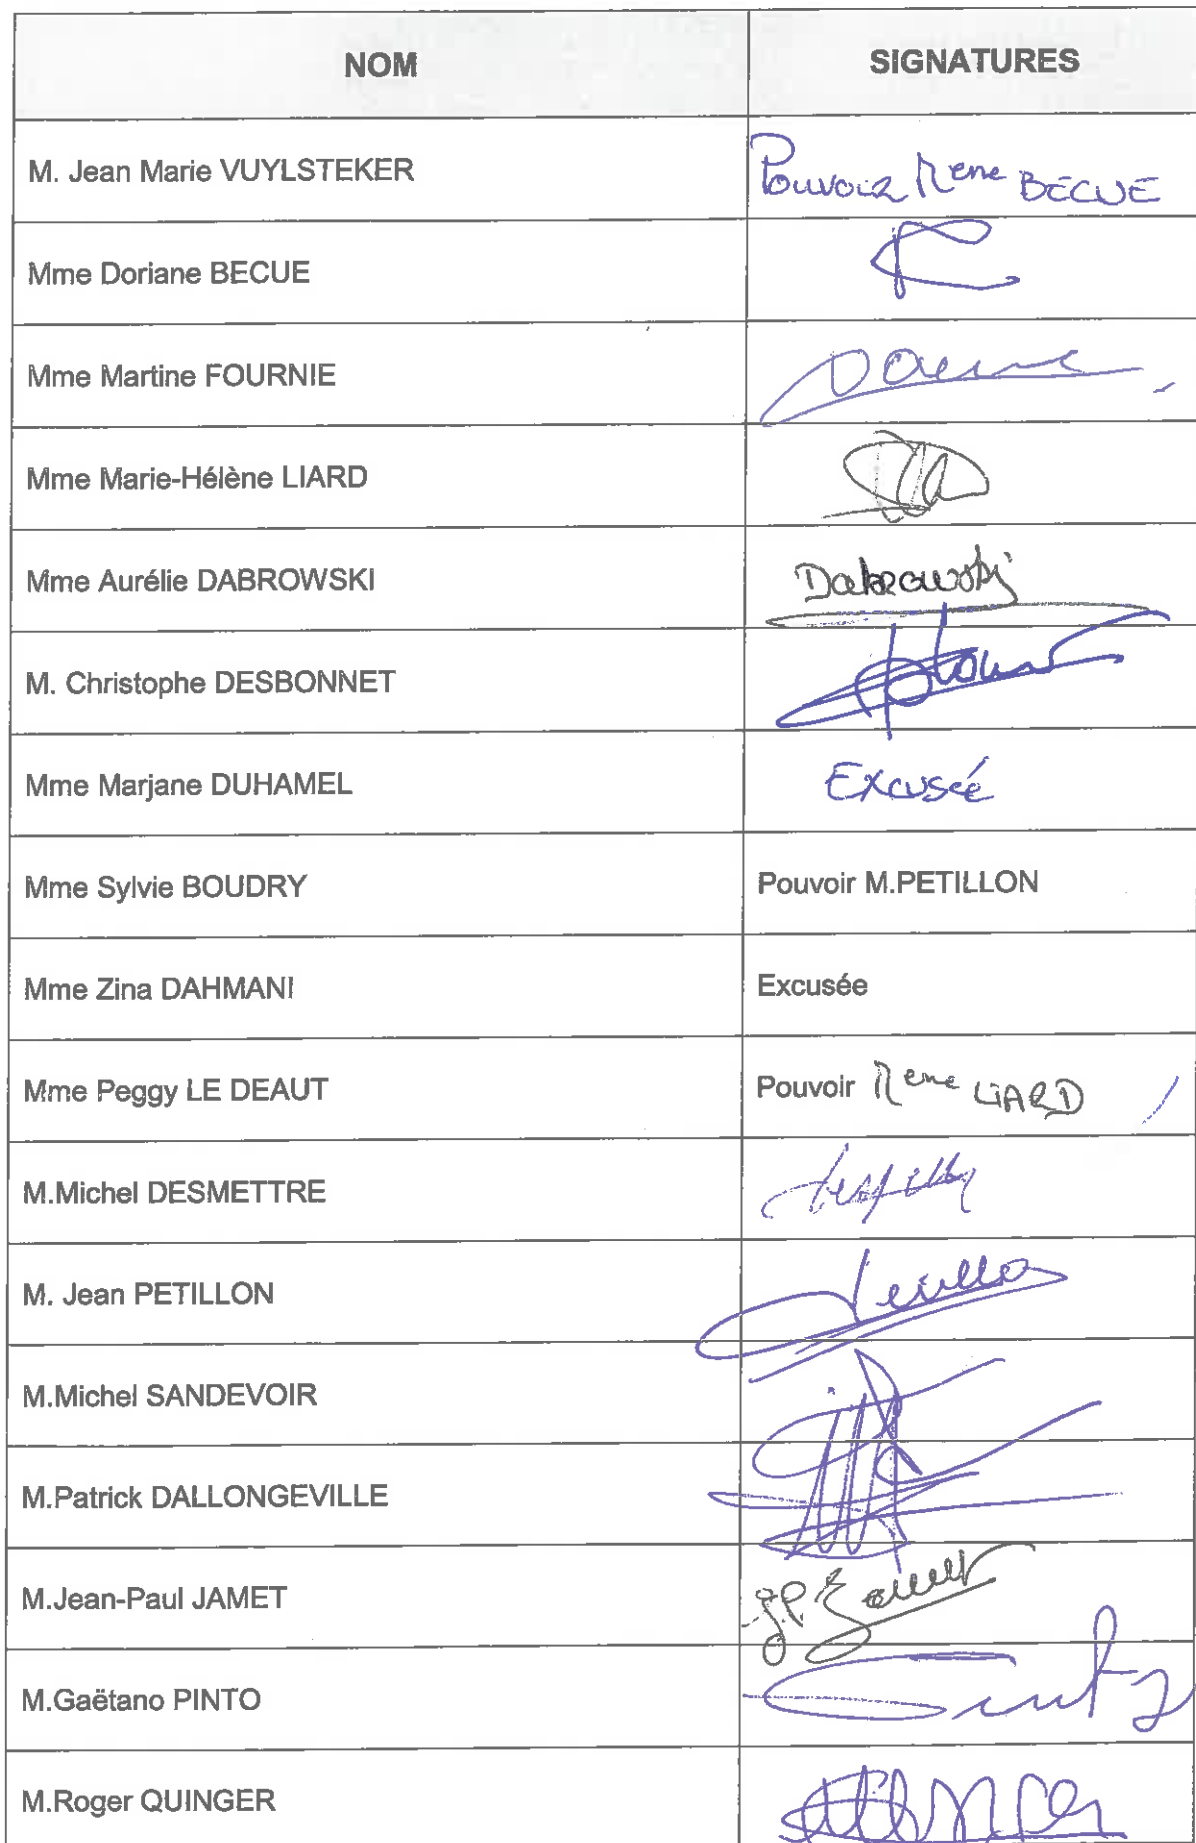 NOM SIGNATURES
M. Jean Marie VUYLSTEKER Pouvoir Mme BECUE
Mme Doriane BECUE
Mme Martine FOURNIE
Mme Marie-Hélène LIARD
Mme Aurélie DABROWSKI Dabrowski
M. Christophe DESBONNET
Mme Marjane DUHAMEL Excusée
Mme Sylvie BOUDRY Pouvoir M.PETILLON
Mme Zina DAHMANI Excusée
Mme Peggy LE DEAUT Pouvoir Mme LIARD
M.Michel DESMETTRE
M. Jean PETILLON
M.Michel SANDEVOIR
M.Patrick DALLONGEVILLE
M.Jean-Paul JAMET
M.Gaëtano PINTO
M.Roger QUINGER